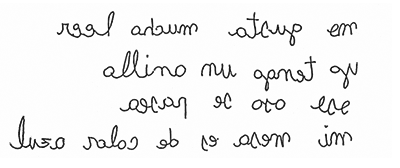 me gusta mucho leer
tengo un anillo
ese oso
mi mesa es de color azul